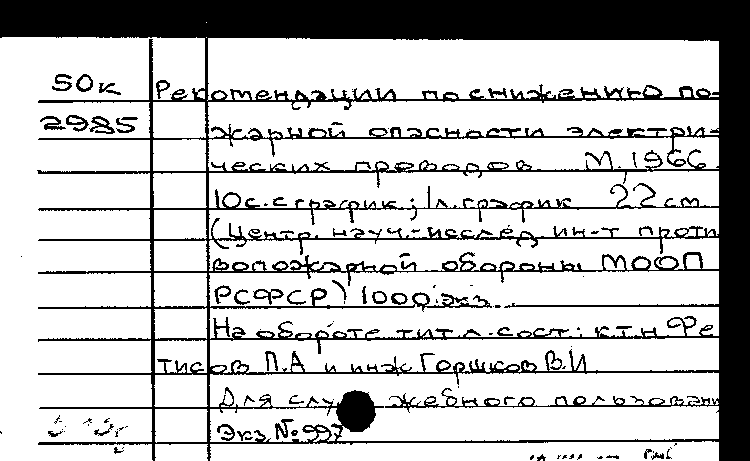 50к Рекомендации по снижению по-
2985 жарной опасности электри-
ческих проводов. М, 1966
10с. с график.; 1л. график 22 см
(Центр. науч.-исслед. ин-т проти
вопожарной обороны МООП
РСФСР) 1000 экз.
На обороте тит. л. сост: к.т.н Фе
тисов П.А и инж Горшков В.И
Для служебного пользовани
Экз. № 997